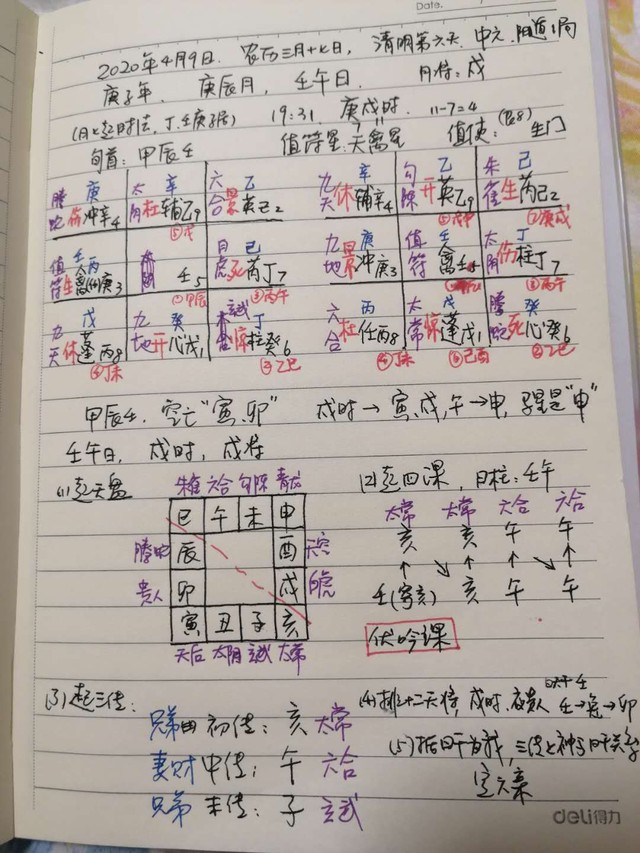 Date.
2020年4月9日. 农历三月十七日, 清明第六天. 中元. 阳遁1局
庚子年. 庚辰月, 壬午日. 月将:戌
(日上起时法, 丁壬庚子居) 19:31. 庚戌时. 11-7=4
旬首:甲辰壬 值符星:天禽星 值使: 生门
螣蛇 庚 伤冲辛4 太阴 辛 杜辅乙9 六合 乙 景英己2
⑤戊
值符 壬丙 生禽任庚3 壬5 白虎 己 死芮丁7
①甲辰 ③丙午
九天 戊 休蓬丙8 九地 癸 开心戊1 玄武 丁 惊柱癸6
④丁未 ②乙巳
九天 辛 休辅辛4 勾陈 乙 开英乙9 朱雀 己 生芮己2
⑤戊申 ⑦庚戌
九地 庚 景冲庚3 值符 壬 禽壬5 太阴 丁 伤柱丁7
③丙午
六合 丙 杜任丙8 太常 戊 惊蓬戊1 螣蛇 癸 死心癸6
④丁未 ⑥己酉 ②乙巳
甲辰壬. 空亡"寅.卯" 戌时→寅,戌,午→申, 马星是"申"
壬午日, 戌时, 戌将
(1)起天盘 朱雀 六合 勾陈 青龙
巳 午 未 申
螣蛇 辰 酉 天空
贵人 卯 戌 白虎
寅 丑 子 亥
天后 太阴 玄武 太常
(2)起四课, 日柱:壬午
太常 太常 六合 六合
亥 亥 午 午
↑ ↘ ↑ ↘ ↑
壬(寄亥) 亥 午 午
伏吟课
(3)起三传:
兄弟 初传: 亥 太常
妻财 中传: 午 六合
兄弟 末传: 子 玄武
(4)排十二天将, 戌时.夜贵人 壬→兔→卯
(5)括日干为我, 三传上神与日干关系
定六亲
deli得力